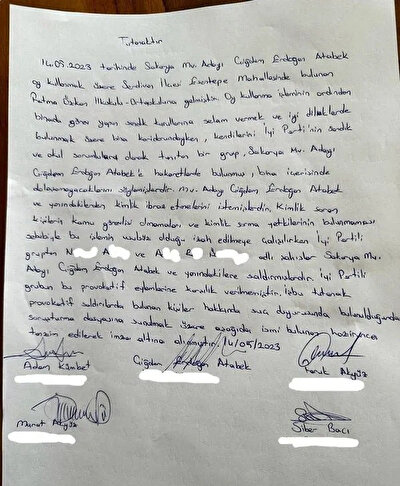 Tutanaktır
14.05.2023 tarihinde Sakarya Mv. Adayı Çiğdem Erdoğan Atabek
oy kullanmak üzere Serdivan İlçesi Esentepe Mahallesinde bulunan
Fatma Özkan İlkokulu-Ortaokuluna gelmiştir. Oy kullanma işleminin ardından
binada görev yapan sandık kurullarına selam vermek ve iyi dileklerde
bulunmak üzere bina koridorundayken, kendilerini İyi Parti'nin sandık
ve okul sorumluları olarak tanıtan bir grup, Sakarya Mv. Adayı
Çiğdem Erdoğan Atabek'e hakaretlerde bulunmuş, bina içerisinde
dolaşamayacaklarını söylemişlerdir. Mv. Adayı Çiğdem Erdoğan Atabek
ve yanındakilerden kimlik ibraz etmelerini istemişlerdir. Kimlik soran
kişilerin kamu görevlisi olmamaları ve kimlik sorma yetkilerinin bulunmaması
sebebiyle bu işlemin usulsüz olduğu izah edilmeye çalışılırken İyi Partili
gruptan N A ve A B A adlı şahıslar Sakarya Mv.
Adayı Çiğdem Erdoğan Atabek ve yanındakilere saldırmışlardır. İyi Partili
grubun bu provokatif eylemlerine karşılık verilmemiştir. İşbu tutanak
provokatif saldırılarda bulunan kişiler hakkında suç duyurusunda bulunulduğunda
soruşturma dosyasına sunulmak üzere aşağıda ismi bulunan hazirunca
tanzim edilerek imza altına alınmıştır. 14/05/2023
Adem Çiğdem Erdoğan Atabek Faruk Akyüz
Murat Akyüz Siber Bacı